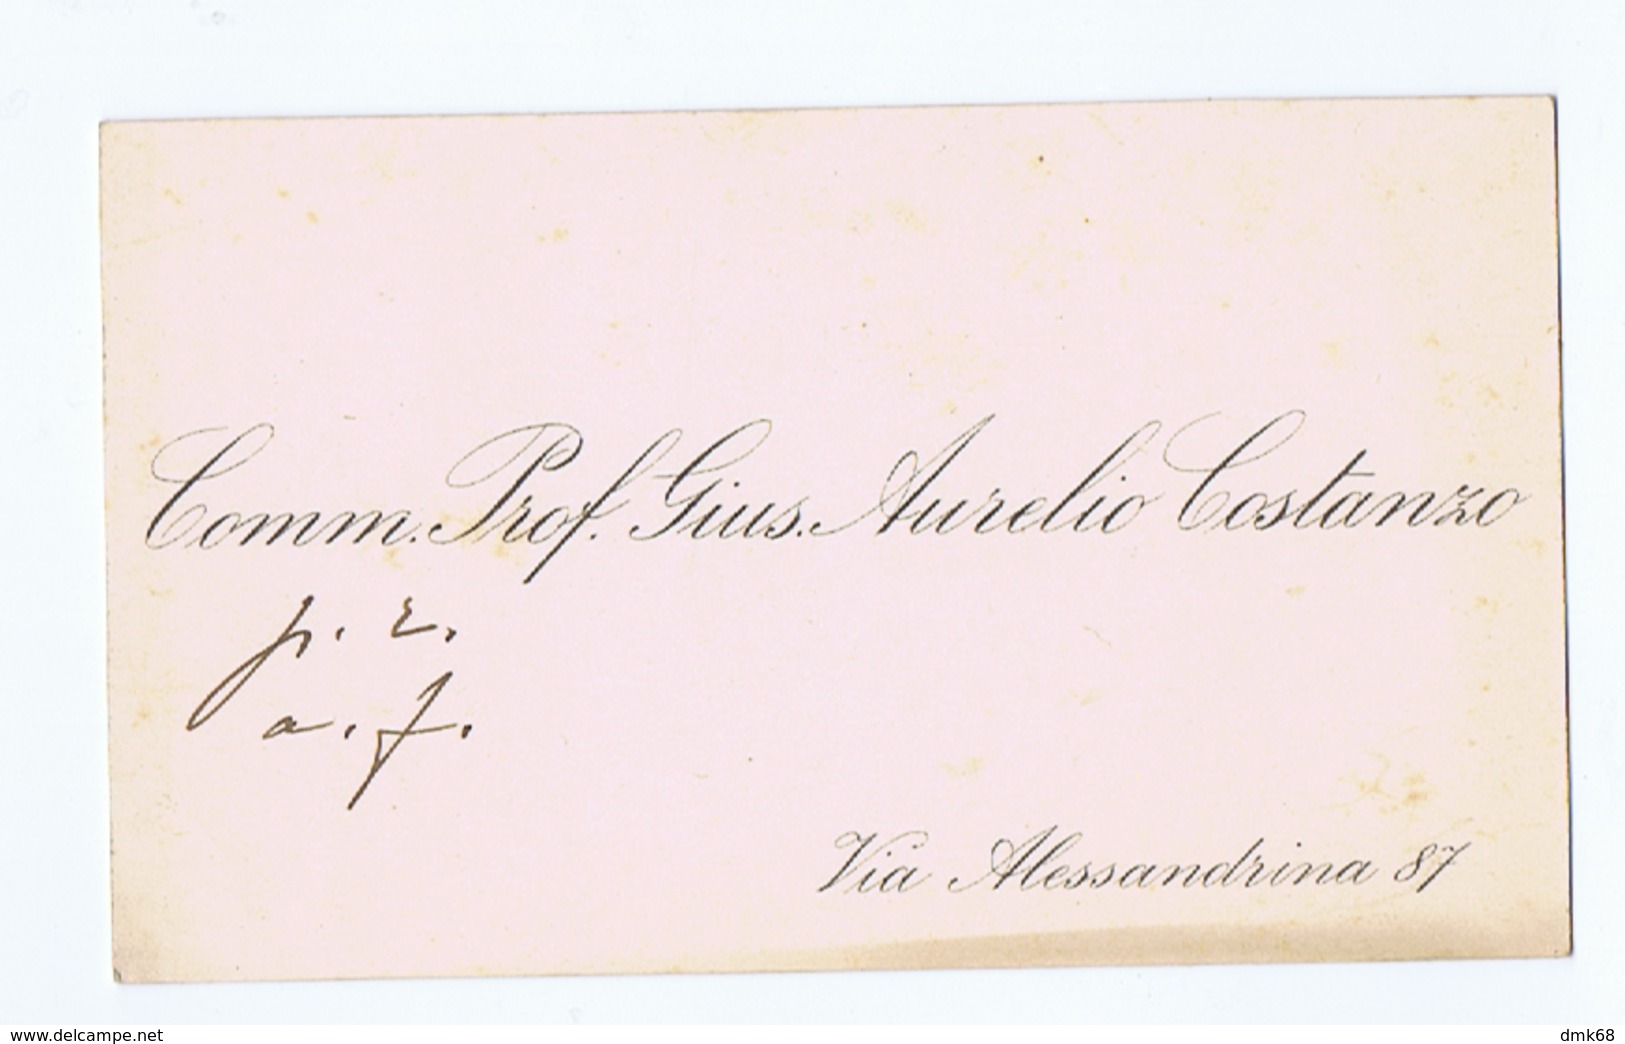 Comm. Prof. Gius. Aurelio Costanzo
p. r.
a. f.
Via Alessandrina 87
www.delcampe.net
dmk68